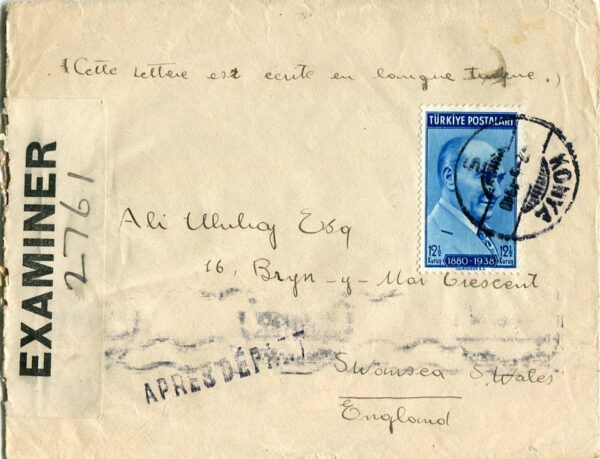 (Cette lettre est écrite en langue turque.)
TÜRKİYE POSTALARI
KONYA
EXAMINER
2761
Ali Uluhay Esq
16, Bryn-y-Mor Crescent
12½ 12½
Kuruş Kuruş
1880-1938
APRES DÉPART
Swansea S. Wales
England